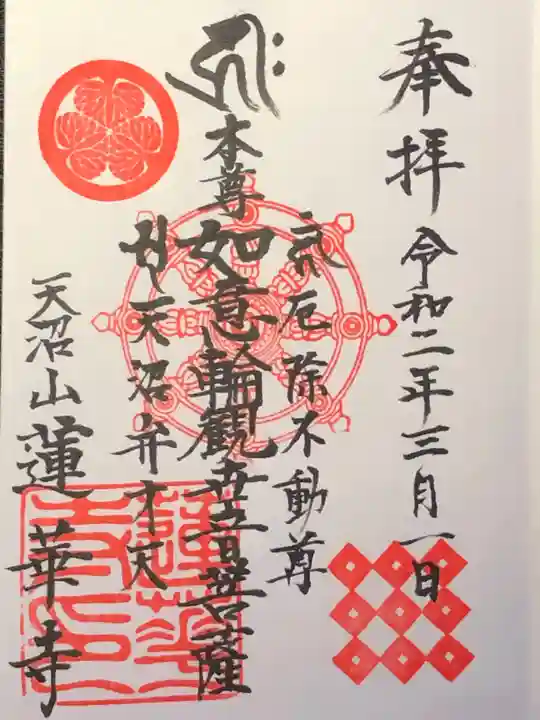 奉拝
令和二年三月一日
厄除不動尊
本尊如意輪観世音菩薩
天沼弁才天
天沼山蓮華寺